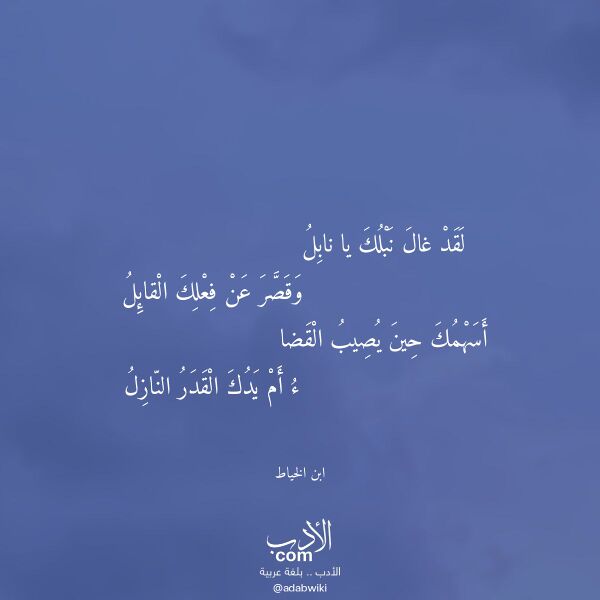 لَقَدْ غالَ نَبْلُكَ يا نابِلُ
وَقَصَّرَ عَنْ فِعْلِكَ الْقائِلُ
أَسَهْمُكَ حِينَ يُصِيبُ الْقَضا
ءُ أَمْ يَدُكَ الْقَدَرُ النّازِلُ
ابن الخياط
الأدب
com
الأدب .. بلغة عربية
@adabwiki